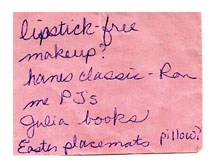 lipstick-free
makeup?
hanes classic - Ron
me PJ's
Julia books
Easter placemats pillow?